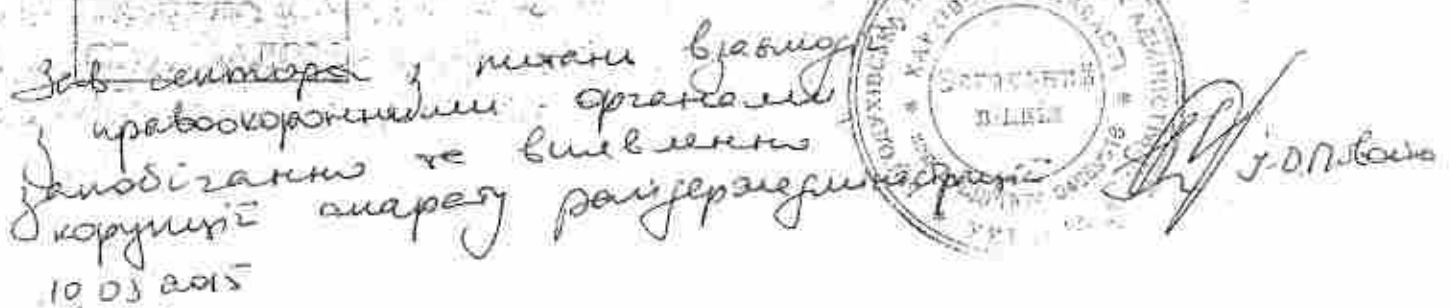 Зав сектора з питань взаємодії
з правоохоронними органами
запобігання та виявлення
корупції апарату райдержадміністрації
10 03 2015
ЗАГАЛЬНИЙ
ВІДДІЛ